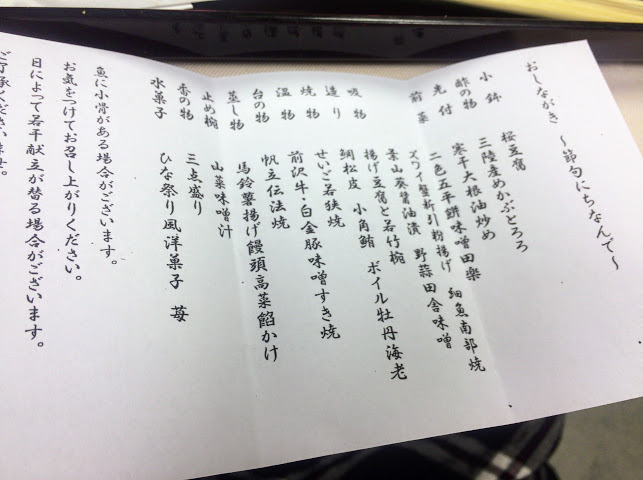 おしながき 〜節句にちなんで〜
小鉢 桜豆腐
酢の物 三陸産めかぶとろろ
先付 寒干大根油炒め
前菜 二色五平餅味噌田楽 細魚南部焼
ズワイ蟹新引粉揚げ 野蒜田舎味噌
葉山葵醤油漬
吸物 揚げ豆腐と若竹椀
造り 鯛松皮 小角鮪 ボイル牡丹海老
焼物 せいご若狭焼
温物 前沢牛・白金豚味噌すき焼
台の物 帆立伝法焼
蒸し物 馬鈴薯揚げ饅頭高菜餡かけ
止め椀 山菜味噌汁
香の物 三点盛り
水菓子 ひな祭り風洋菓子 苺
魚に小骨がある場合がございます。
お気をつけてお召し上がりください。
日によって若干献立が替る場合がございます。
ご了承くださいませ。